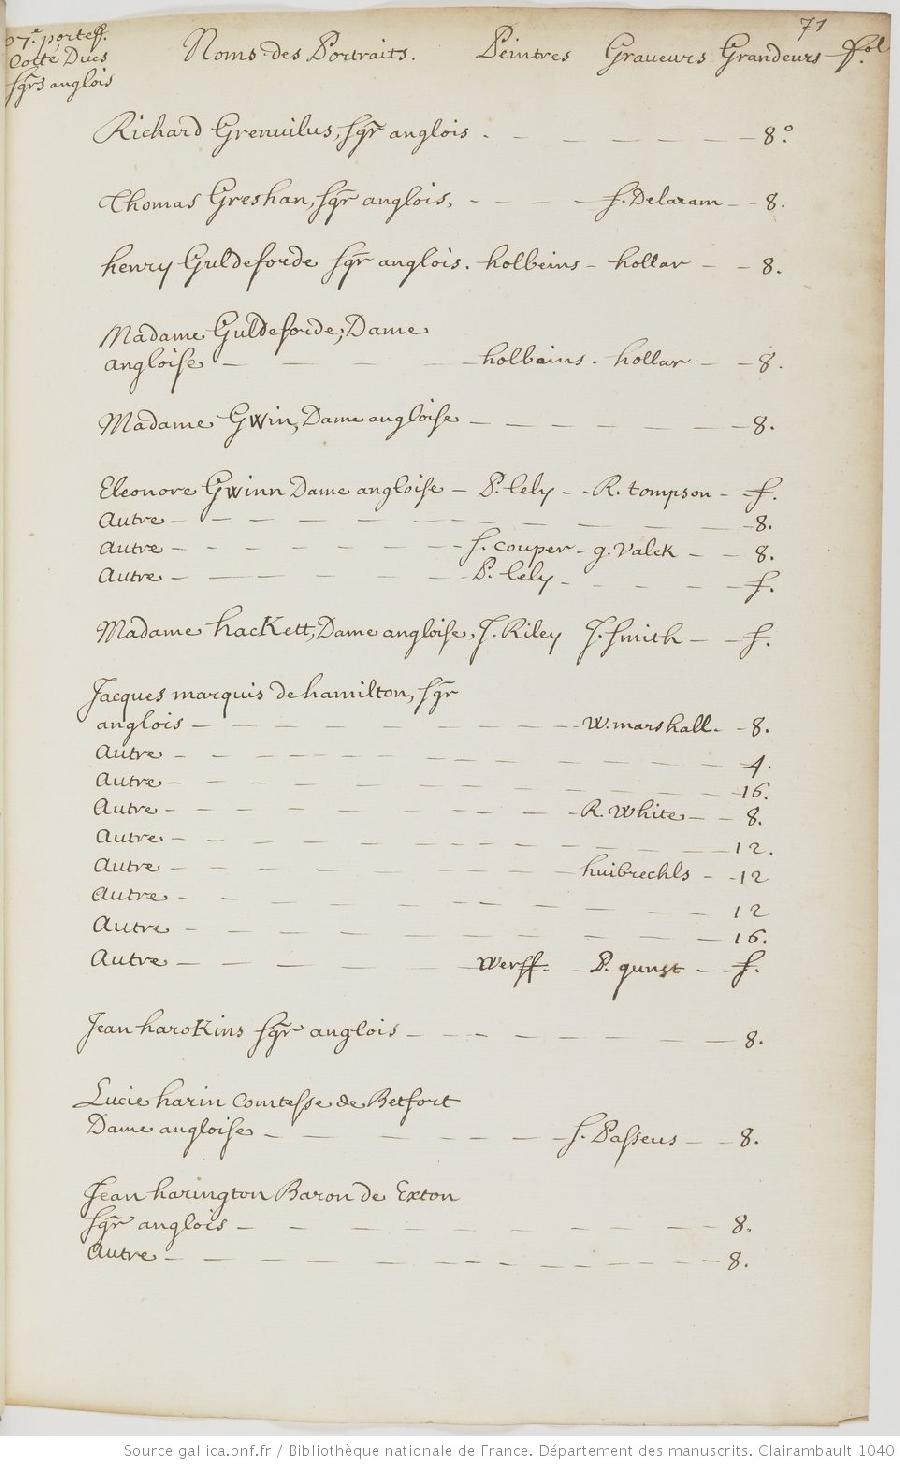 71
portef.
Cotte Ducs
sgrs anglois
Noms des Portraits. Peintres Graveurs Grandeurs fol
Richard Grenuilus, sgr anglois - - - - - - 8°.
Thomas Greshan, sgr anglois, - - - - f. Delaram - - 8.
henry Guldeforde sgr anglois. holbeins - hollar - - 8.
Madame Guldeforde, Dame
angloise - - - - holbains. hollar - - 8.
Madame Gwin, Dame angloise - - - - - - 8.
Eleonore Gwinn Dame angloise - P. Lely - - R. tompson - f.
Autre - - - - - - - - 8.
Autre - - - - - f. couper - g. Valck - - 8.
Autre - - - - - P. Lely - - - - f.
Madame hackett, Dame angloise, J. Riley J. Smith - - f.
Jacques marquis de hamilton, sgr
anglois - - - - - - w. marshall. - 8.
Autre - - - - - - - - 4.
Autre - - - - - - - - 16.
Autre - - - - - - - R. White - - 8.
Autre - - - - - - - - 12.
Autre - - - - - - - huibrechls - - 12
Autre - - - - - - - 12
Autre - - - - - - - - 16.
Autre - - - - werff. - P. gunst - - f.
Jean harokins sgr anglois - - - - - - 8.
Lucie harin Comtesse de Betfort
Dame angloise - - - - - - f. Passeus - - 8.
Jean harington Baron de Exton
sgr anglois - - - - - - - 8.
Autre - - - - - - - - 8.
Source gallica.bnf.fr / Bibliothèque nationale de France. Département des manuscrits. Clairambault 1040